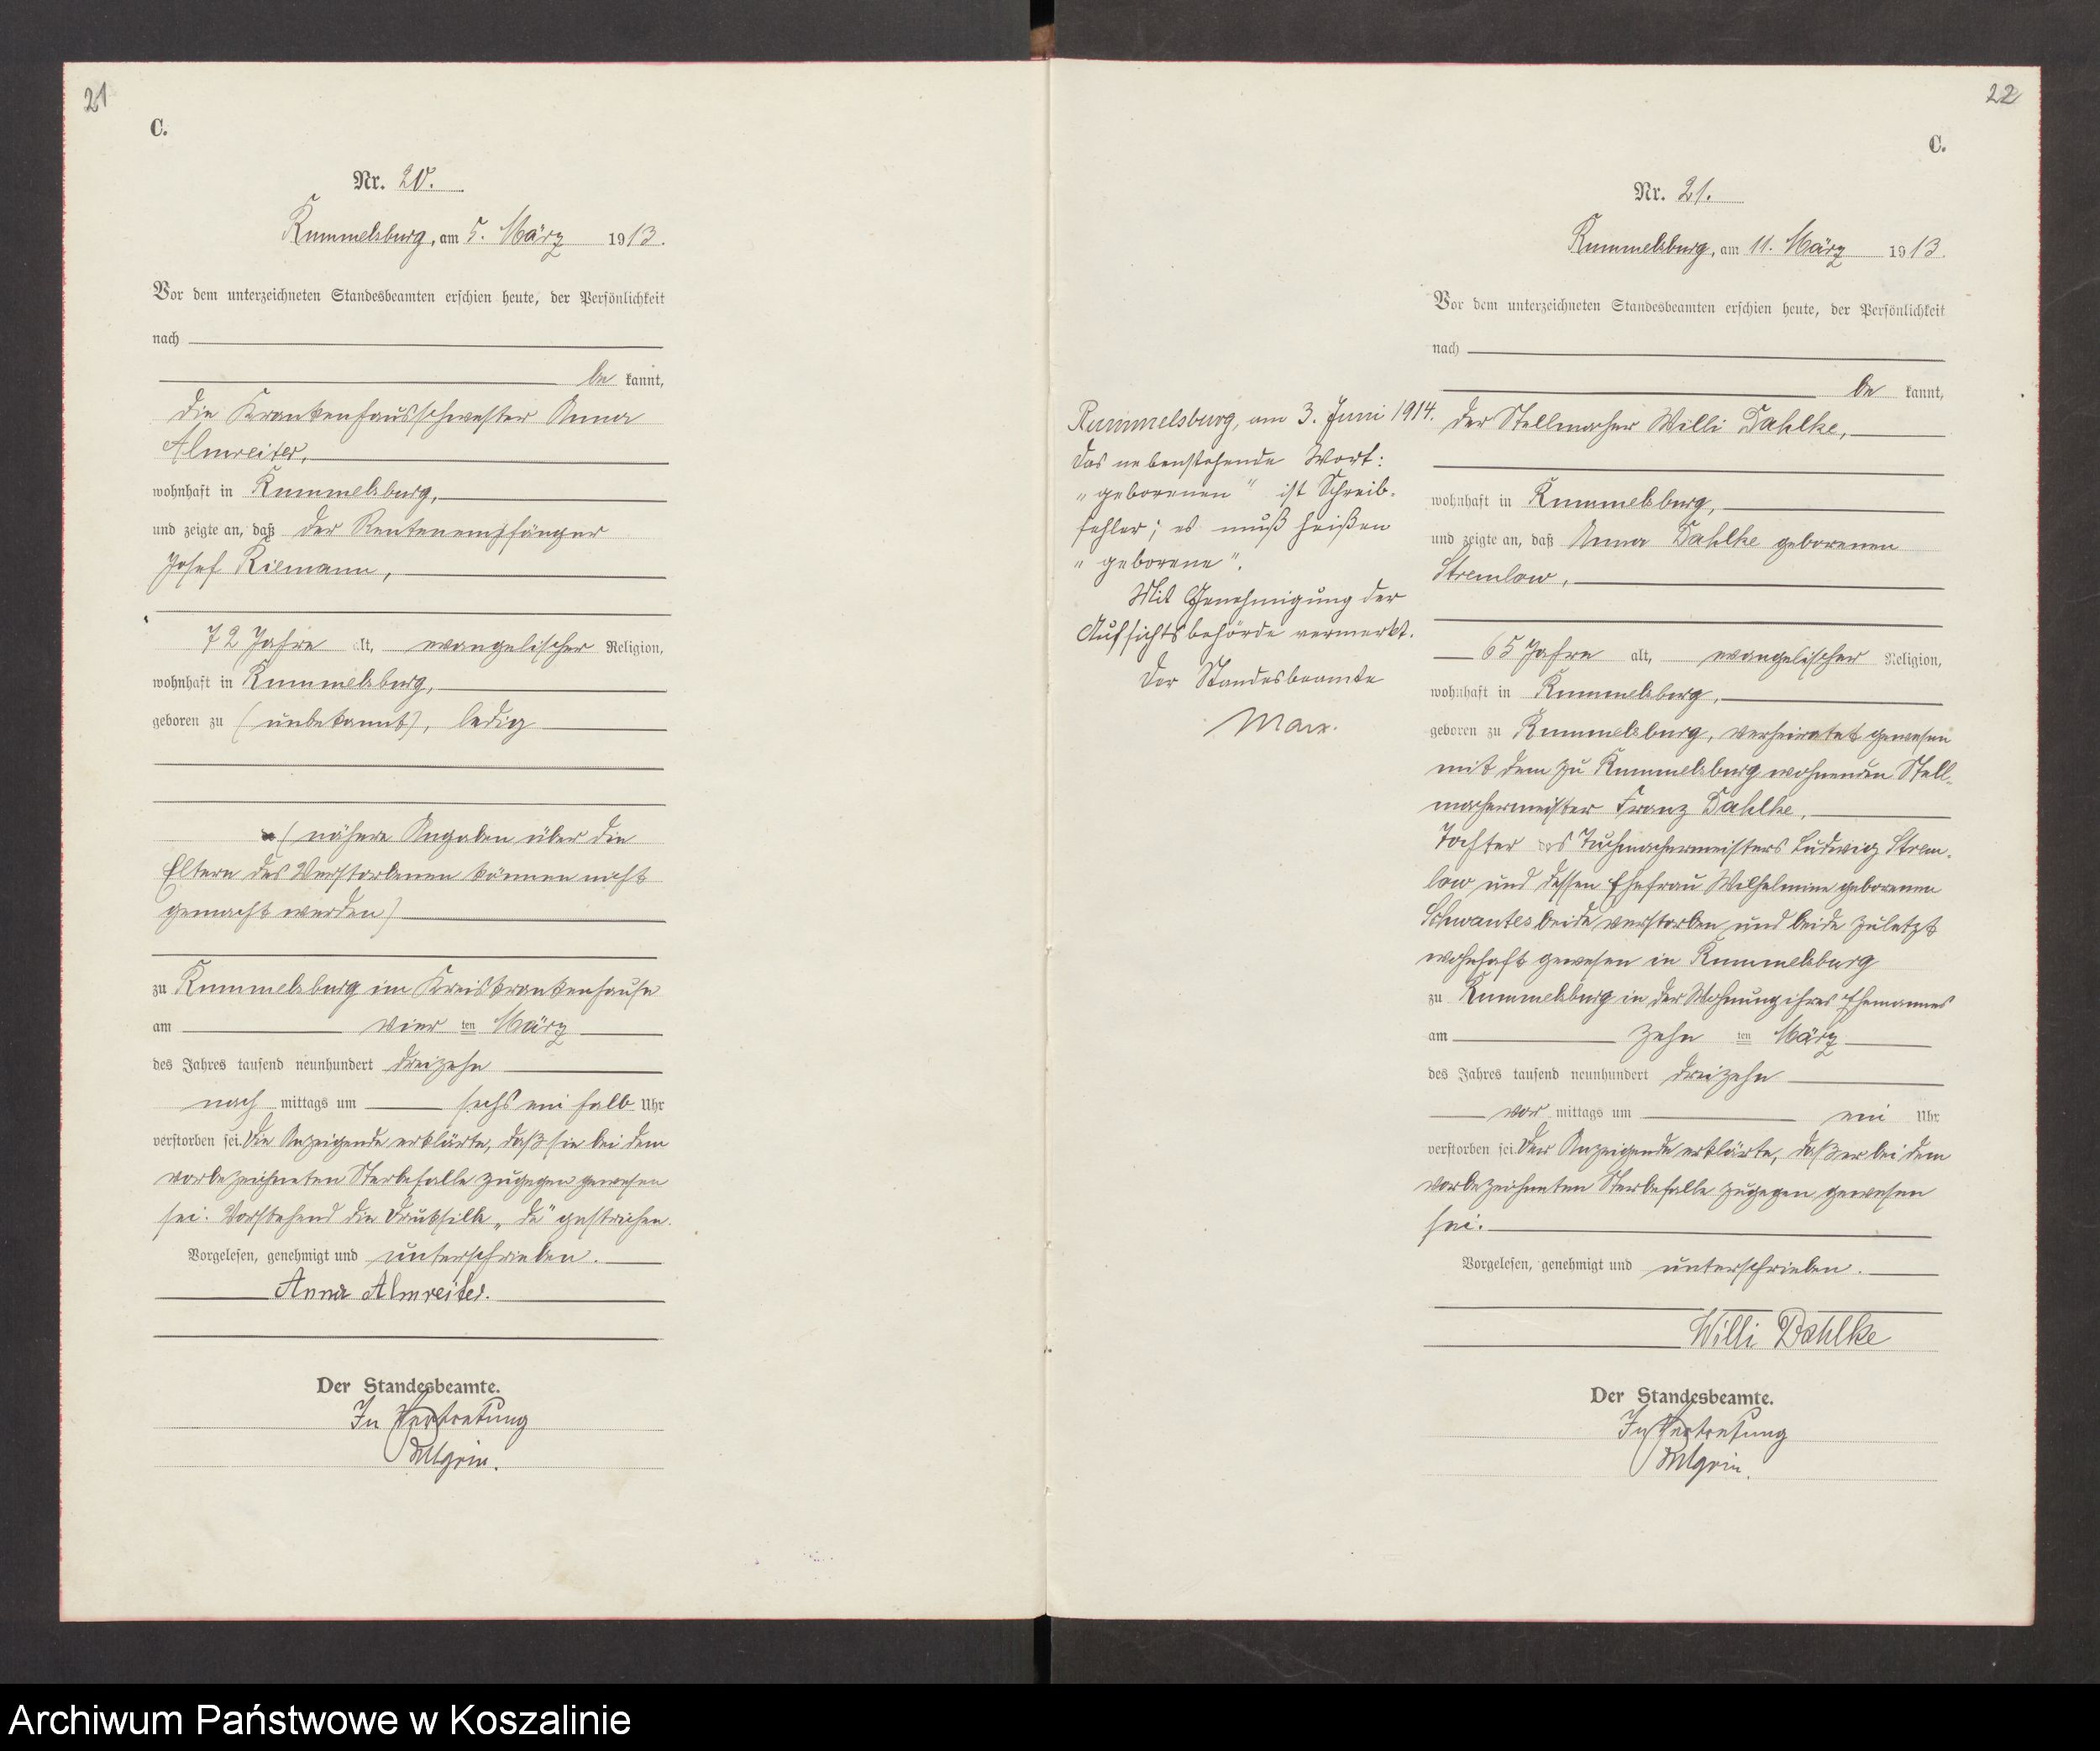 21
C.
Nr. 20.
Rummelsburg, am 5. März 1913.
Vor dem unterzeichneten Standesbeamten erschien heute, der Persönlichkeit
nach
be kannt,
die Krankenhausschwester Anna
Almreiter,
wohnhaft in Rummelsburg,
und zeigte an, daß der Rentenempfänger
Josef Riemann,
72 Jahre alt, evangelischer Religion,
wohnhaft in Rummelsburg,
geboren zu (unbekannt), ledig
(nähere Angaben über die
Eltern des Verstorbenen können nicht
gemacht werden)
zu Rummelsburg im Kreiskrankenhause
am vier ten März
des Jahres tausend neunhundert dreizehn
nach mittags um sechs ein halb Uhr
verstorben sei. Die Anzeigende erklärte, daß sie bei dem
vorbezeichneten Sterbefalle zugegen gewesen
sei. Vorstehend die Drucksilbe „de" gestrichen.
Vorgelesen, genehmigt und unterschrieben.
Anna Almreiter.
Der Standesbeamte.
In Vertretung
22
C.
Nr. 21.
Rummelsburg, am 11. März 1913.
Vor dem unterzeichneten Standesbeamten erschien heute, der Persönlichkeit
nach
be kannt,
der Stellmacher Willi Dahlke,
wohnhaft in Rummelsburg,
und zeigte an, daß Anna Dahlke geborenen
Stremlow,
65 Jahre alt, evangelischer Religion,
wohnhaft in Rummelsburg,
geboren zu Rummelsburg, verheiratet gewesen
mit dem zu Rummelsburg wohnenden Stell-
machermeister Franz Dahlke,
Tochter des Tuchmachermeisters Ludwig Strem-
low und dessen Ehefrau Wilhelmine geborenen
Schwantes beide verstorben und beide zuletzt
wohnhaft gewesen in Rummelsburg
zu Rummelsburg in der Wohnung ihres Ehemannes
am zehn ten März
des Jahres tausend neunhundert dreizehn
vor mittags um ein Uhr
verstorben sei. Der Anzeigende erklärte, daß er bei dem
vorbezeichneten Sterbefalle zugegen gewesen
sei.
Vorgelesen, genehmigt und unterschrieben.
Willi Dahlke
Der Standesbeamte.
In Vertretung
Rummelsburg, am 3. Juni 1914.
Das nebenstehende Wort:
„geborenen" ist Schreib-
fehler; es muß heißen
„geborene".
Mit Genehmigung der
Aufsichtsbehörde vermerkt.
Der Standesbeamte
Marx.
Archiwum Państwowe w Koszalinie